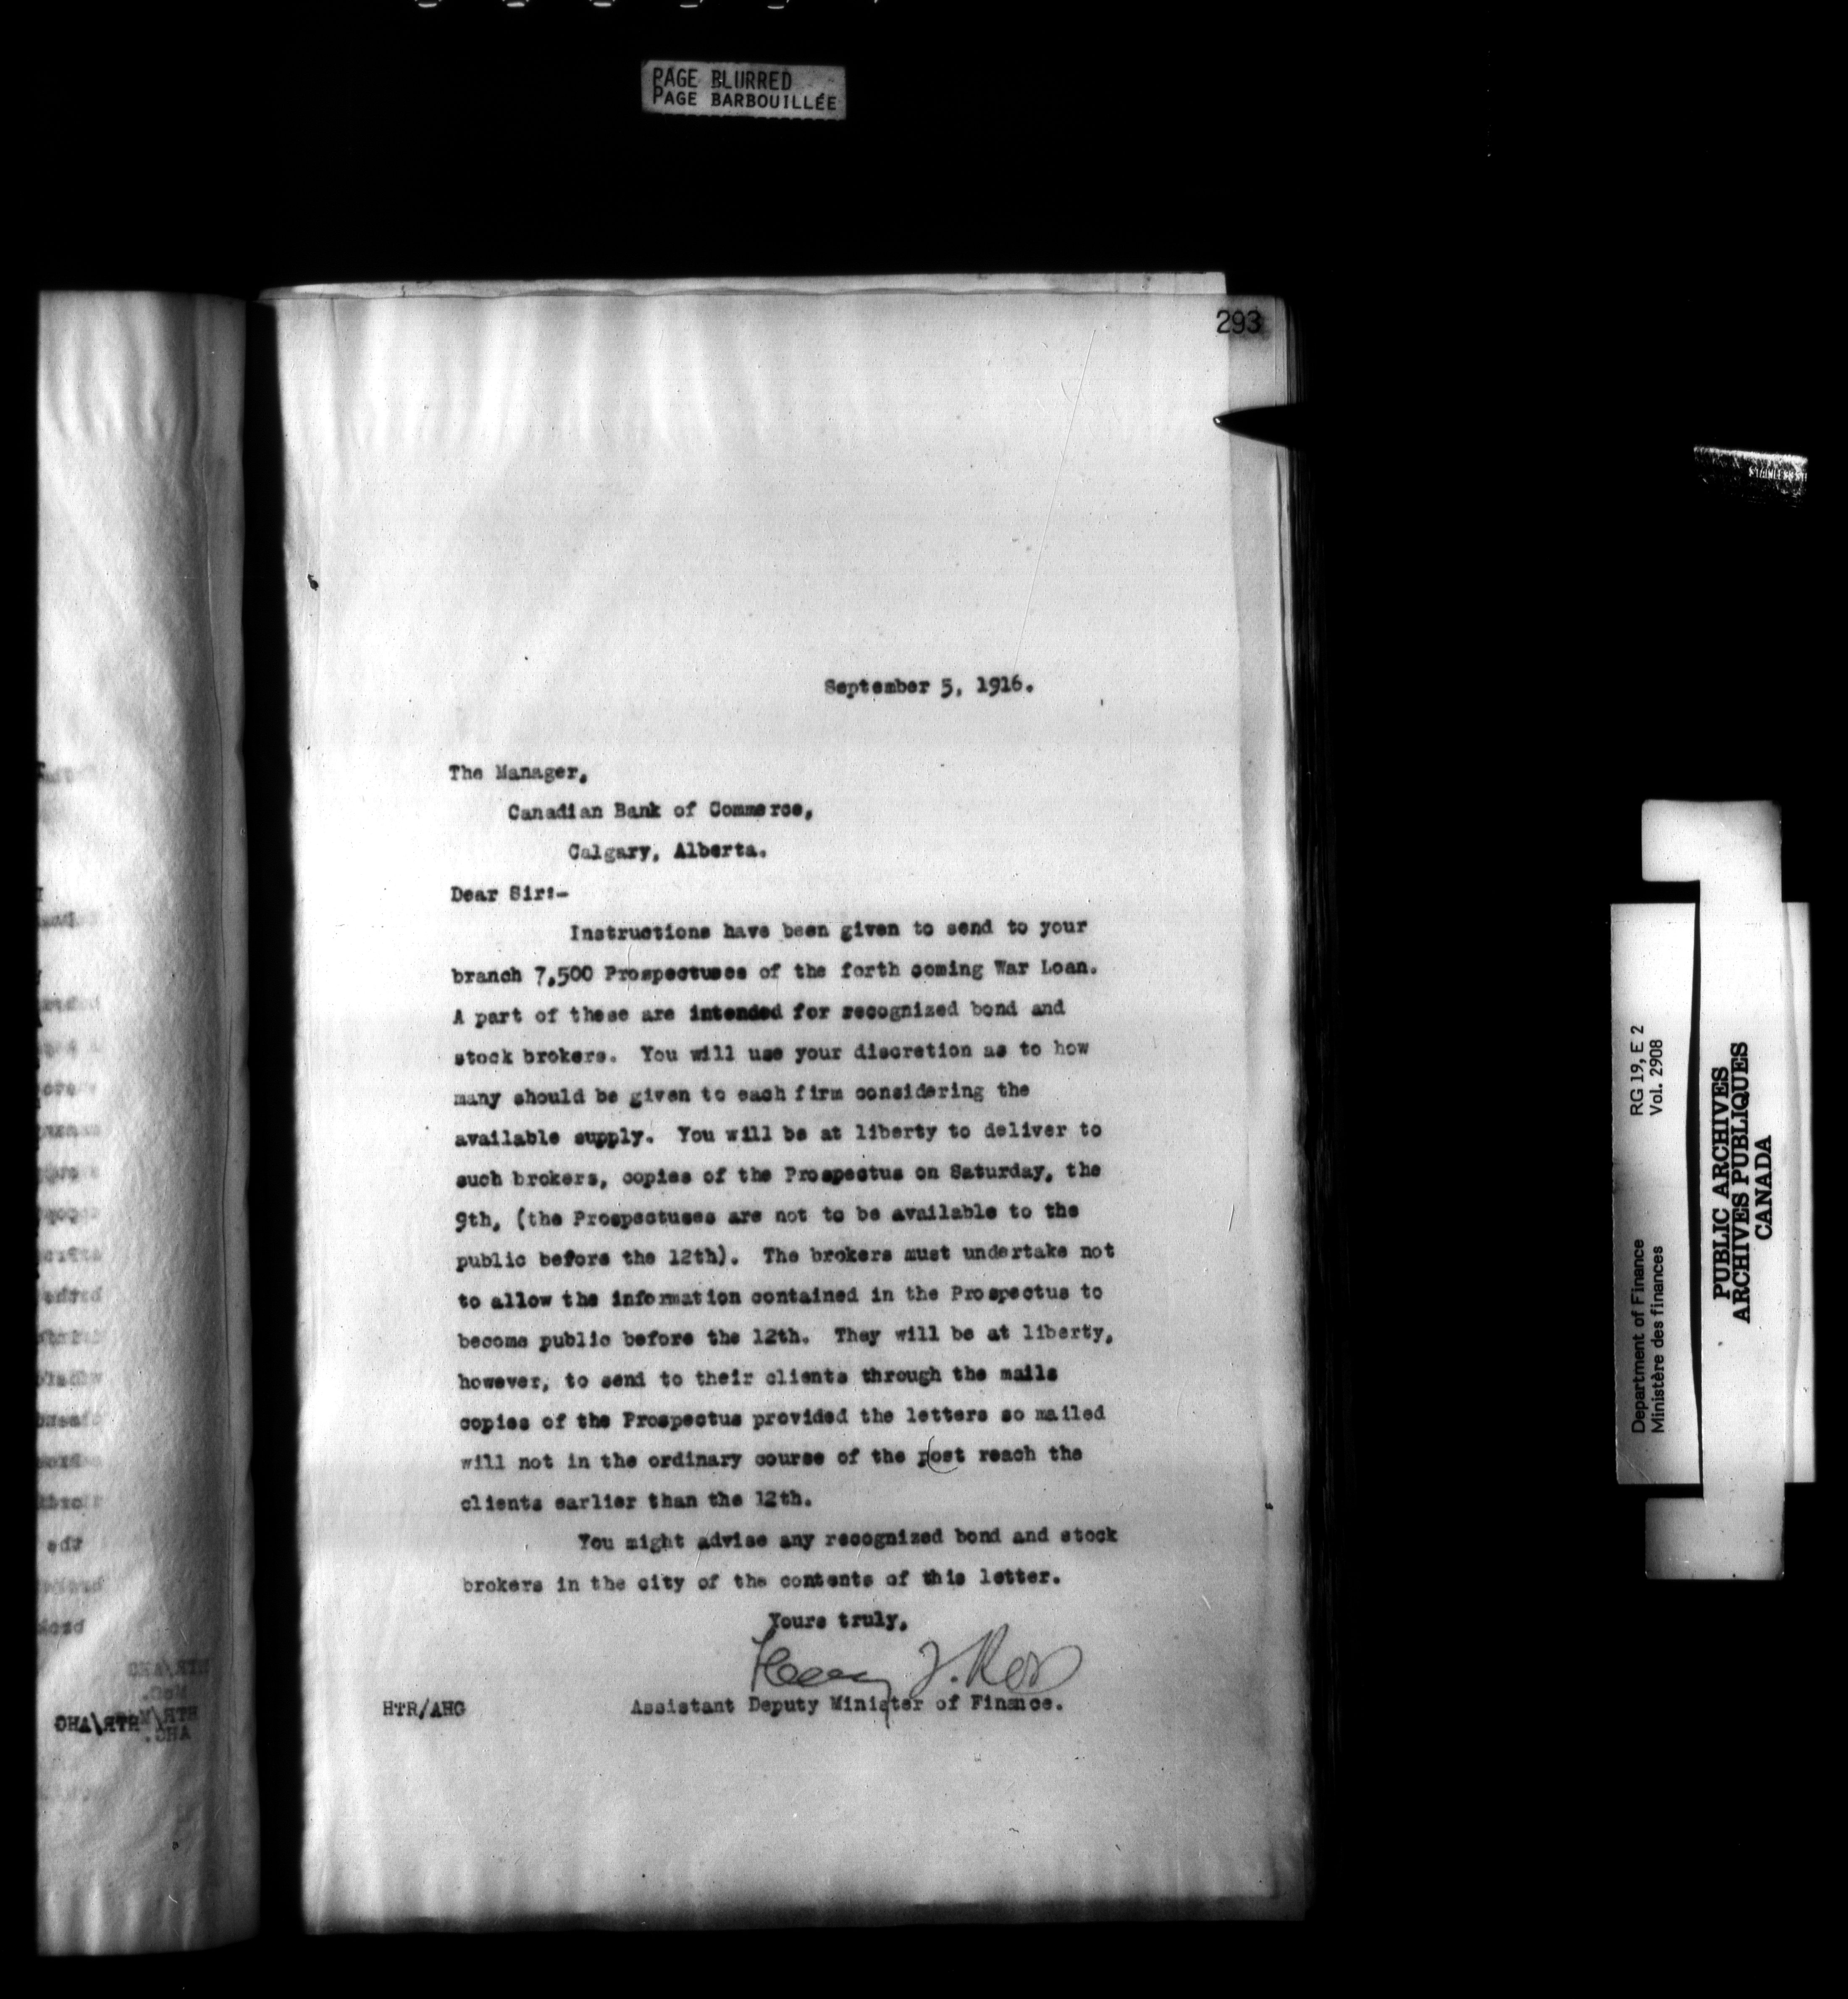 PAGE BLURRED
PAGE BARBOUILLÉE
293
September 5, 1916.
The Manager,
Canadian Bank of Commerce,
Calgary, Alberta.
Dear Sir:-
Instructions have been given to send to your
branch 7,500 Prospectuses of the forth coming War Loan.
A part of these are intended for recognized bond and
stock brokers. You will use your discretion as to how
many should be given to each firm considering the
available supply. You will be at liberty to deliver to
such brokers, copies of the Prospectus on Saturday, the
9th, (the Prospectuses are not to be available to the
public before the 12th). The brokers must undertake not
to allow the information contained in the Prospectus to
become public before the 12th. They will be at liberty,
however, to send to their clients through the mails
copies of the Prospectus provided the letters so mailed
will not in the ordinary course of the post reach the
clients earlier than the 12th.
You might advise any recognized bond and stock
brokers in the city of the contents of this letter.
Yours truly,
Assistant Deputy Minister of Finance.
HTR/AHG
Department of Finance RG 19, E 2
Ministère des finances Vol. 2908
PUBLIC ARCHIVES
ARCHIVES PUBLIQUES
CANADA